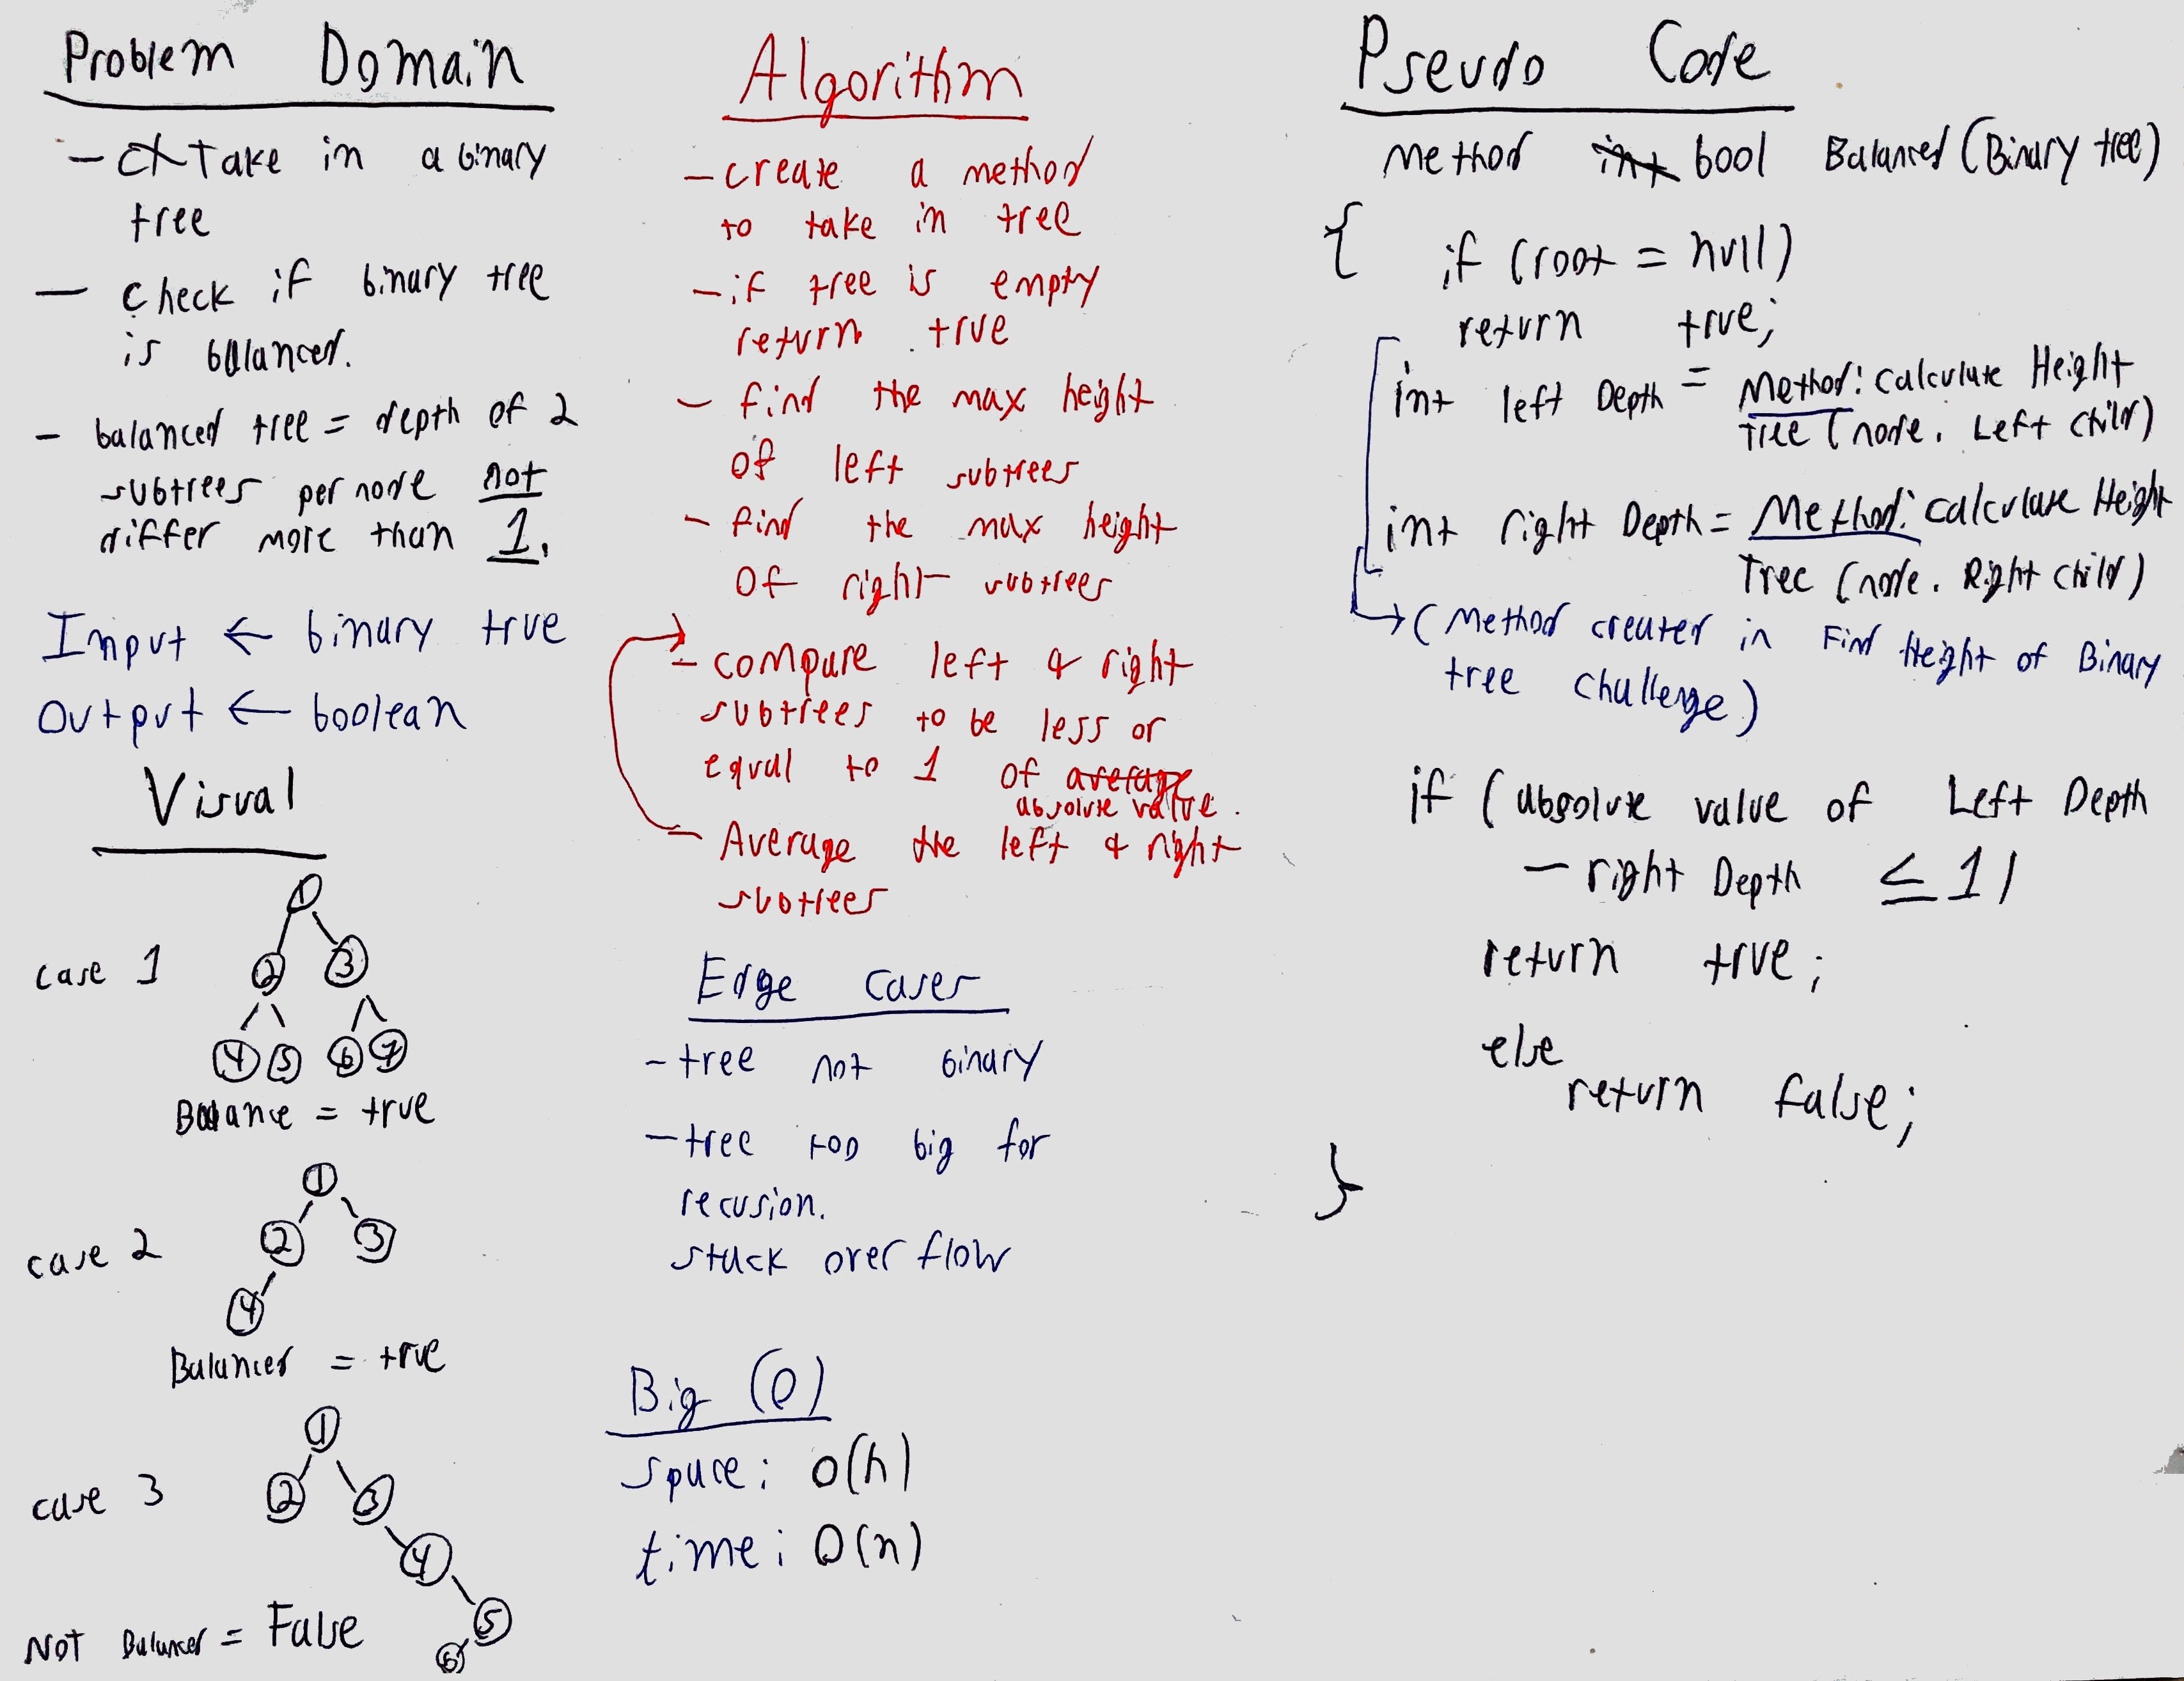 Problem Domain
- Take in a binary
tree
- check if binary tree
is balanced.
- balanced tree = depth of 2
subtrees per node not
differ more than 1.
Input ← binary true
Output ← boolean
Visual
case 1
1
2 3
4 5 6 7
Balance = true
case 2
1
2 3
4
Balanced = true
case 3
1
2 3
4
5
6
Not Balanced = False
Algorithm
- create a method
to take in tree
- if tree is empty
return true
- find the max height
of left subtrees
- find the max height
Of right subtrees
- compare left & right
subtrees to be less or
equal to 1 of average
absolute value.
- Average the left & right
subtrees
Edge cases
- tree not binary
- tree too big for
recusion.
stack over flow
Big (O)
space: O(h)
time: O(n)
Pseudo Code
Method int bool Balanced (Binary tree)
{ if (root = null)
return true;
int left Depth = Method: Calculate Height
Tree (node. Left child)
int right Depth = Method: Calculate Height
Tree (node. Right child)
→ (Method created in Find Height of Binary
tree challenge)
if (absolute value of Left Depth
- right Depth ≤ 1)
return true;
else
return false;
}